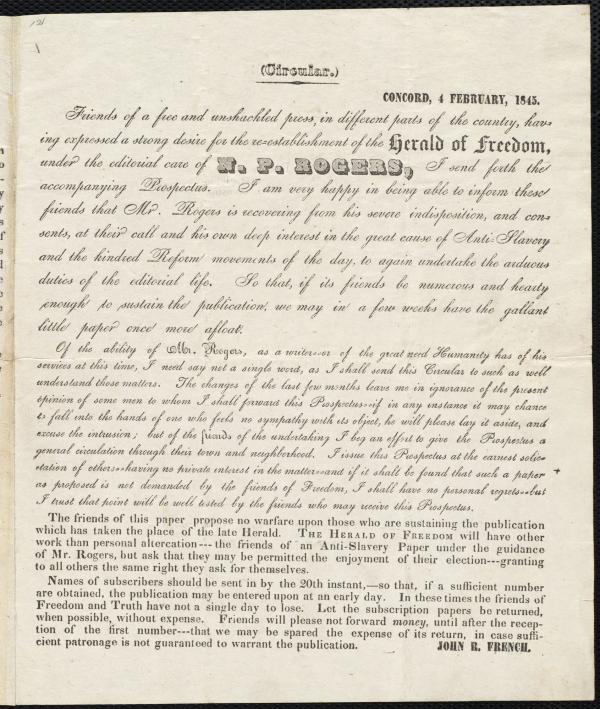 121
(Circular.)
CONCORD, 4 FEBRUARY, 1845.
Friends of a free and unshackled press, in different parts of the country, hav-
ing expressed a strong desire for the re-establishment of the Herald of Freedom,
under the editorial care of N. P. ROGERS, I send forth the
accompanying Prospectus. I am very happy in being able to inform these
friends that Mr. Rogers is recovering from his severe indisposition, and con-
sents, at their call and his own deep interest in the great cause of Anti-Slavery
and the kindred Reform movements of the day, to again undertake the arduous
duties of the editorial life. So that, if its friends be numerous and hearty
enough to sustain the publication, we may in a few weeks have the gallant
little paper once more afloat.
Of the ability of Mr. Rogers, as a writer--or of the great need Humanity has of his
services at this time, I need say not a single word, as I shall send this Circular to such as well
understand those matters. The changes of the last few months leave me in ignorance of the present
opinion of some men to whom I shall forward this Prospectus--if in any instance it may chance
to fall into the hands of one who feels no sympathy with its object, he will please lay it aside, and
excuse the intrusion; but of the friends of the undertaking I beg an effort to give the Prospectus a
general circulation through their town and neighborhood. I issue this Prospectus at the earnest solic-
itation of others--having no private interest in the matter--and if it shall be found that such a paper
as proposed is not demanded by the friends of Freedom, I shall have no personal regrets--but
I trust that point will be well tested by the friends who may receive this Prospectus.
The friends of this paper propose no warfare upon those who are sustaining the publication
which has taken the place of the late Herald. THE HERALD OF FREEDOM will have other
work than personal altercation---the friends of an Anti-Slavery Paper under the guidance
of Mr. Rogers, but ask that they may be permitted the enjoyment of their election---granting
to all others the same right they ask for themselves.
Names of subscribers should be sent in by the 20th instant,—so that, if a sufficient number
are obtained, the publication may be entered upon at an early day. In these times the friends of
Freedom and Truth have not a single day to lose. Let the subscription papers be returned,
when possible, without expense. Friends will please not forward money, until after the recep-
tion of the first number---that we may be spared the expense of its return, in case suffi-
cient patronage is not guaranteed to warrant the publication. JOHN R. FRENCH.